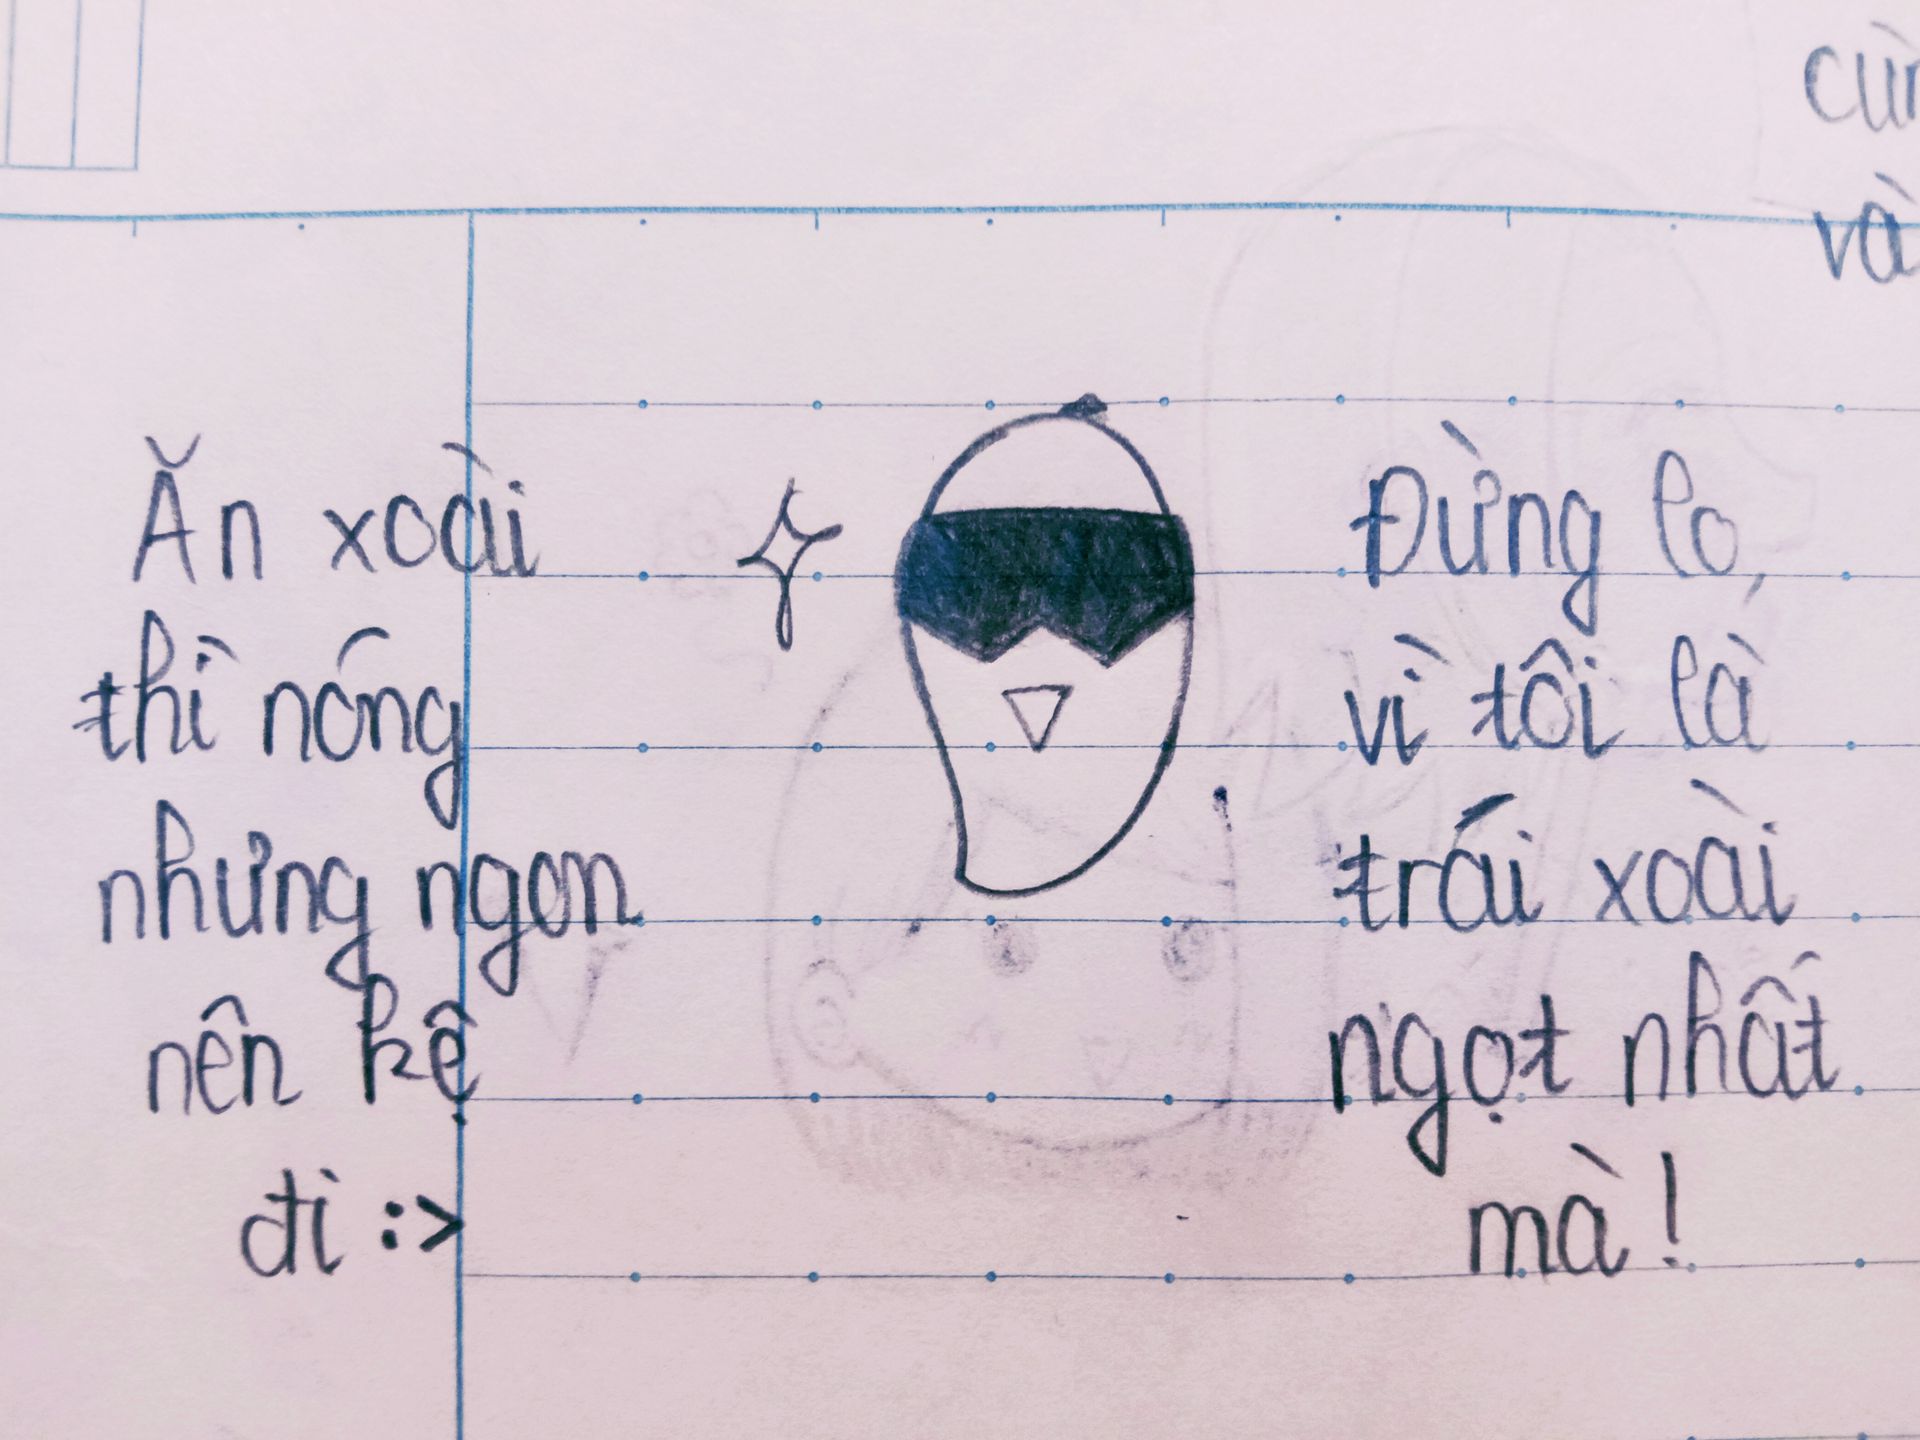 Ăn xoài
thì nóng
nhưng ngon
nên kệ
đi :>
Đừng lo,
vì tôi là
trái xoài
ngọt nhất
mà!
và